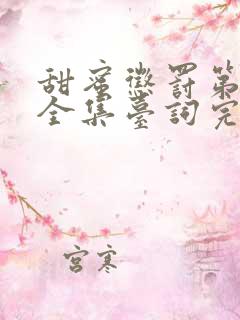 甜蜜懲罰第
全集臺詞完
宮寒